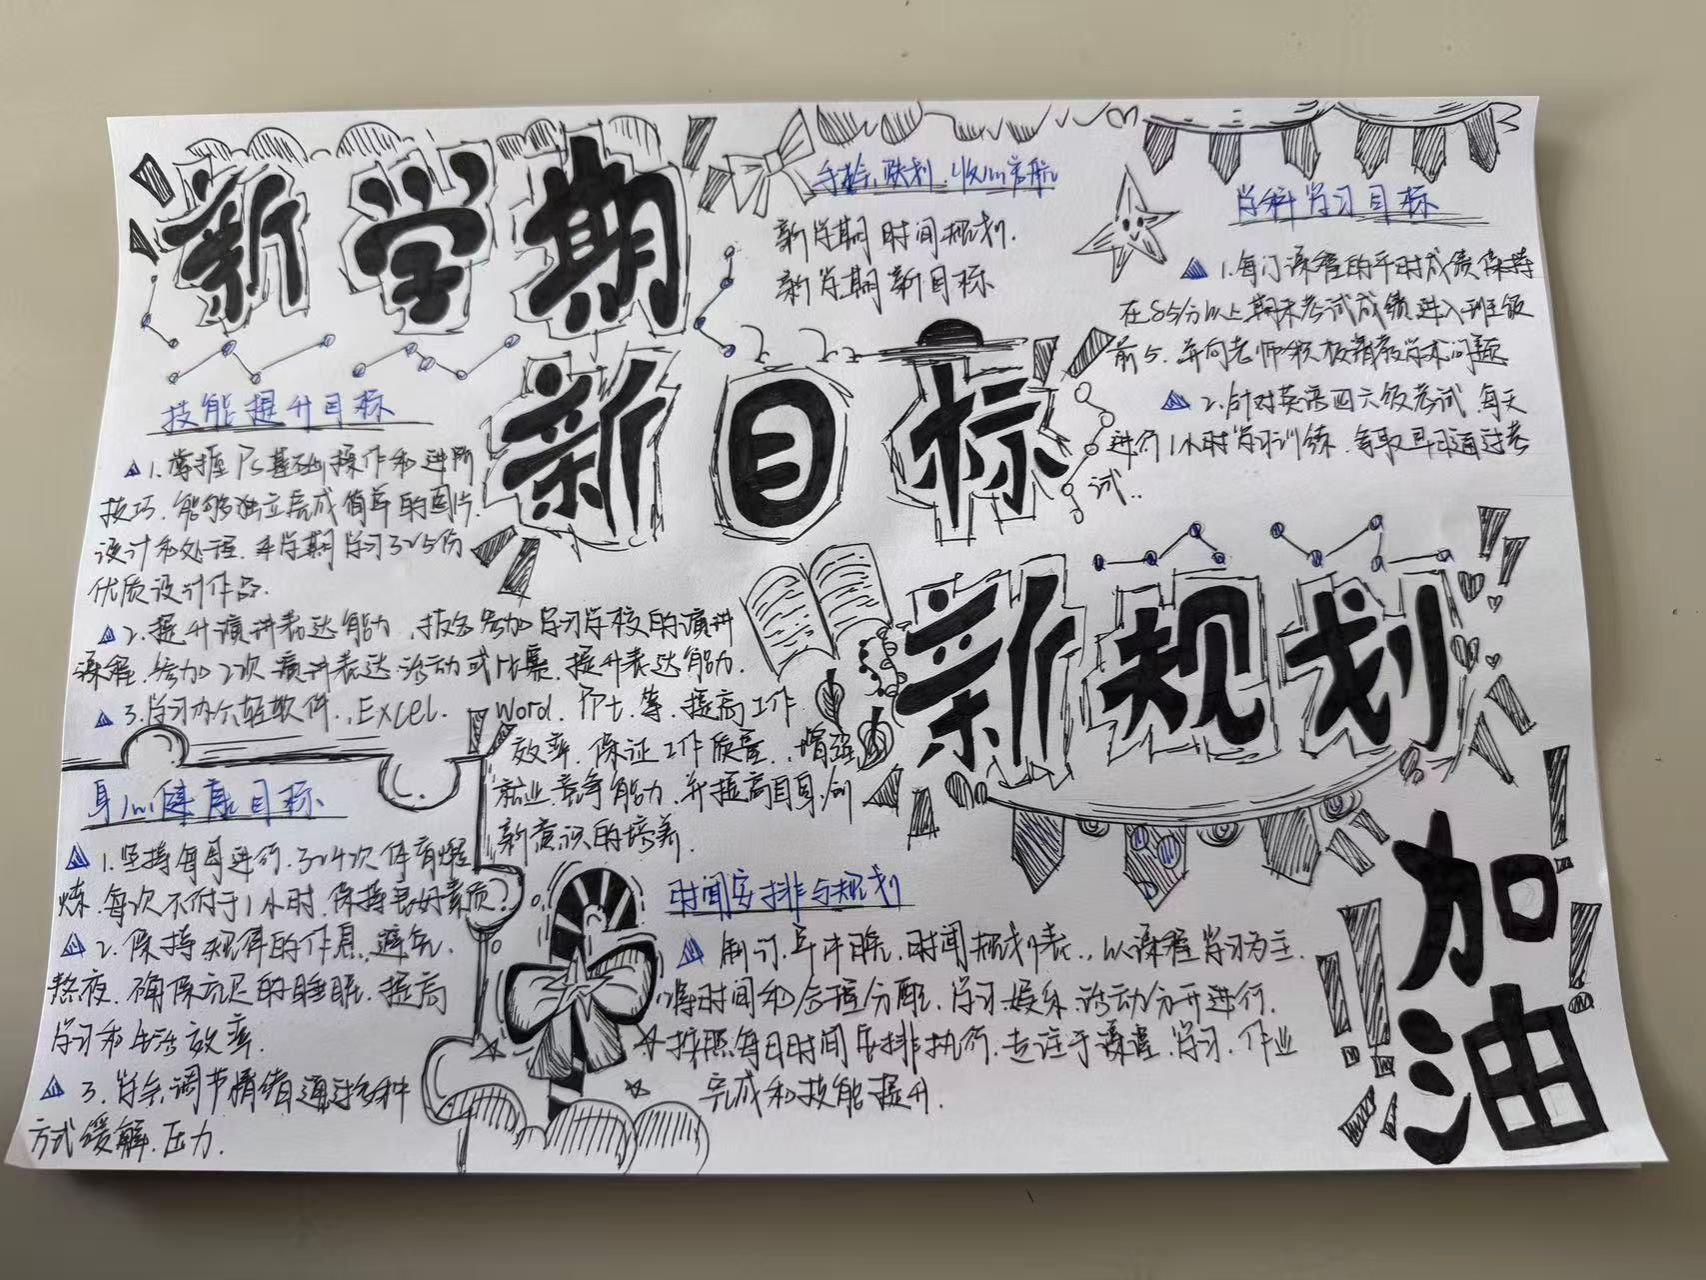 新学期
新目标
新规划
加油
新学期时间规划.
新学期新目标
学科学习目标
1.每门课程的平时成绩保持
在85分以上期末考试成绩进入班级
前5.并向老师积极请教学术问题
2.针对英语四六级考试每天
进行1小时学习训练.争取早日通过考
试..
技能提升目标
1.掌握Ps基础操作和进阶
技巧.能够独立完成简单的图片
设计和处理.本学期学习3~5份
优质设计作品.
2.提升演讲表达能力.报名参加学习学校的演讲
课程.参加2次演讲表达活动或比赛.提升表达能力.
3.学习办公轻软件..Excel. word. PPt.等.提高工作
效率.保证工作质量..增强
就业.竞争能力.并提高自身.创
新意识的培养.
身心健康目标
1.坚持每周进行.3~4次体育锻
炼.每次不付于1小时.保持良好素质?
2.保持规律的作息.避免.
熬夜.确保充足的睡眠.提高
学习和生活效率.
3.学会调节情绪通过多种
方式缓解.压力.
时间安排与规划
制订.每日.时间规划表..以课程学习为主.
将时间和合理分配.学习.娱乐.活动分开进行.
按照每日时间安排执行.专注于课堂.学习.作业
完成和技能提升.